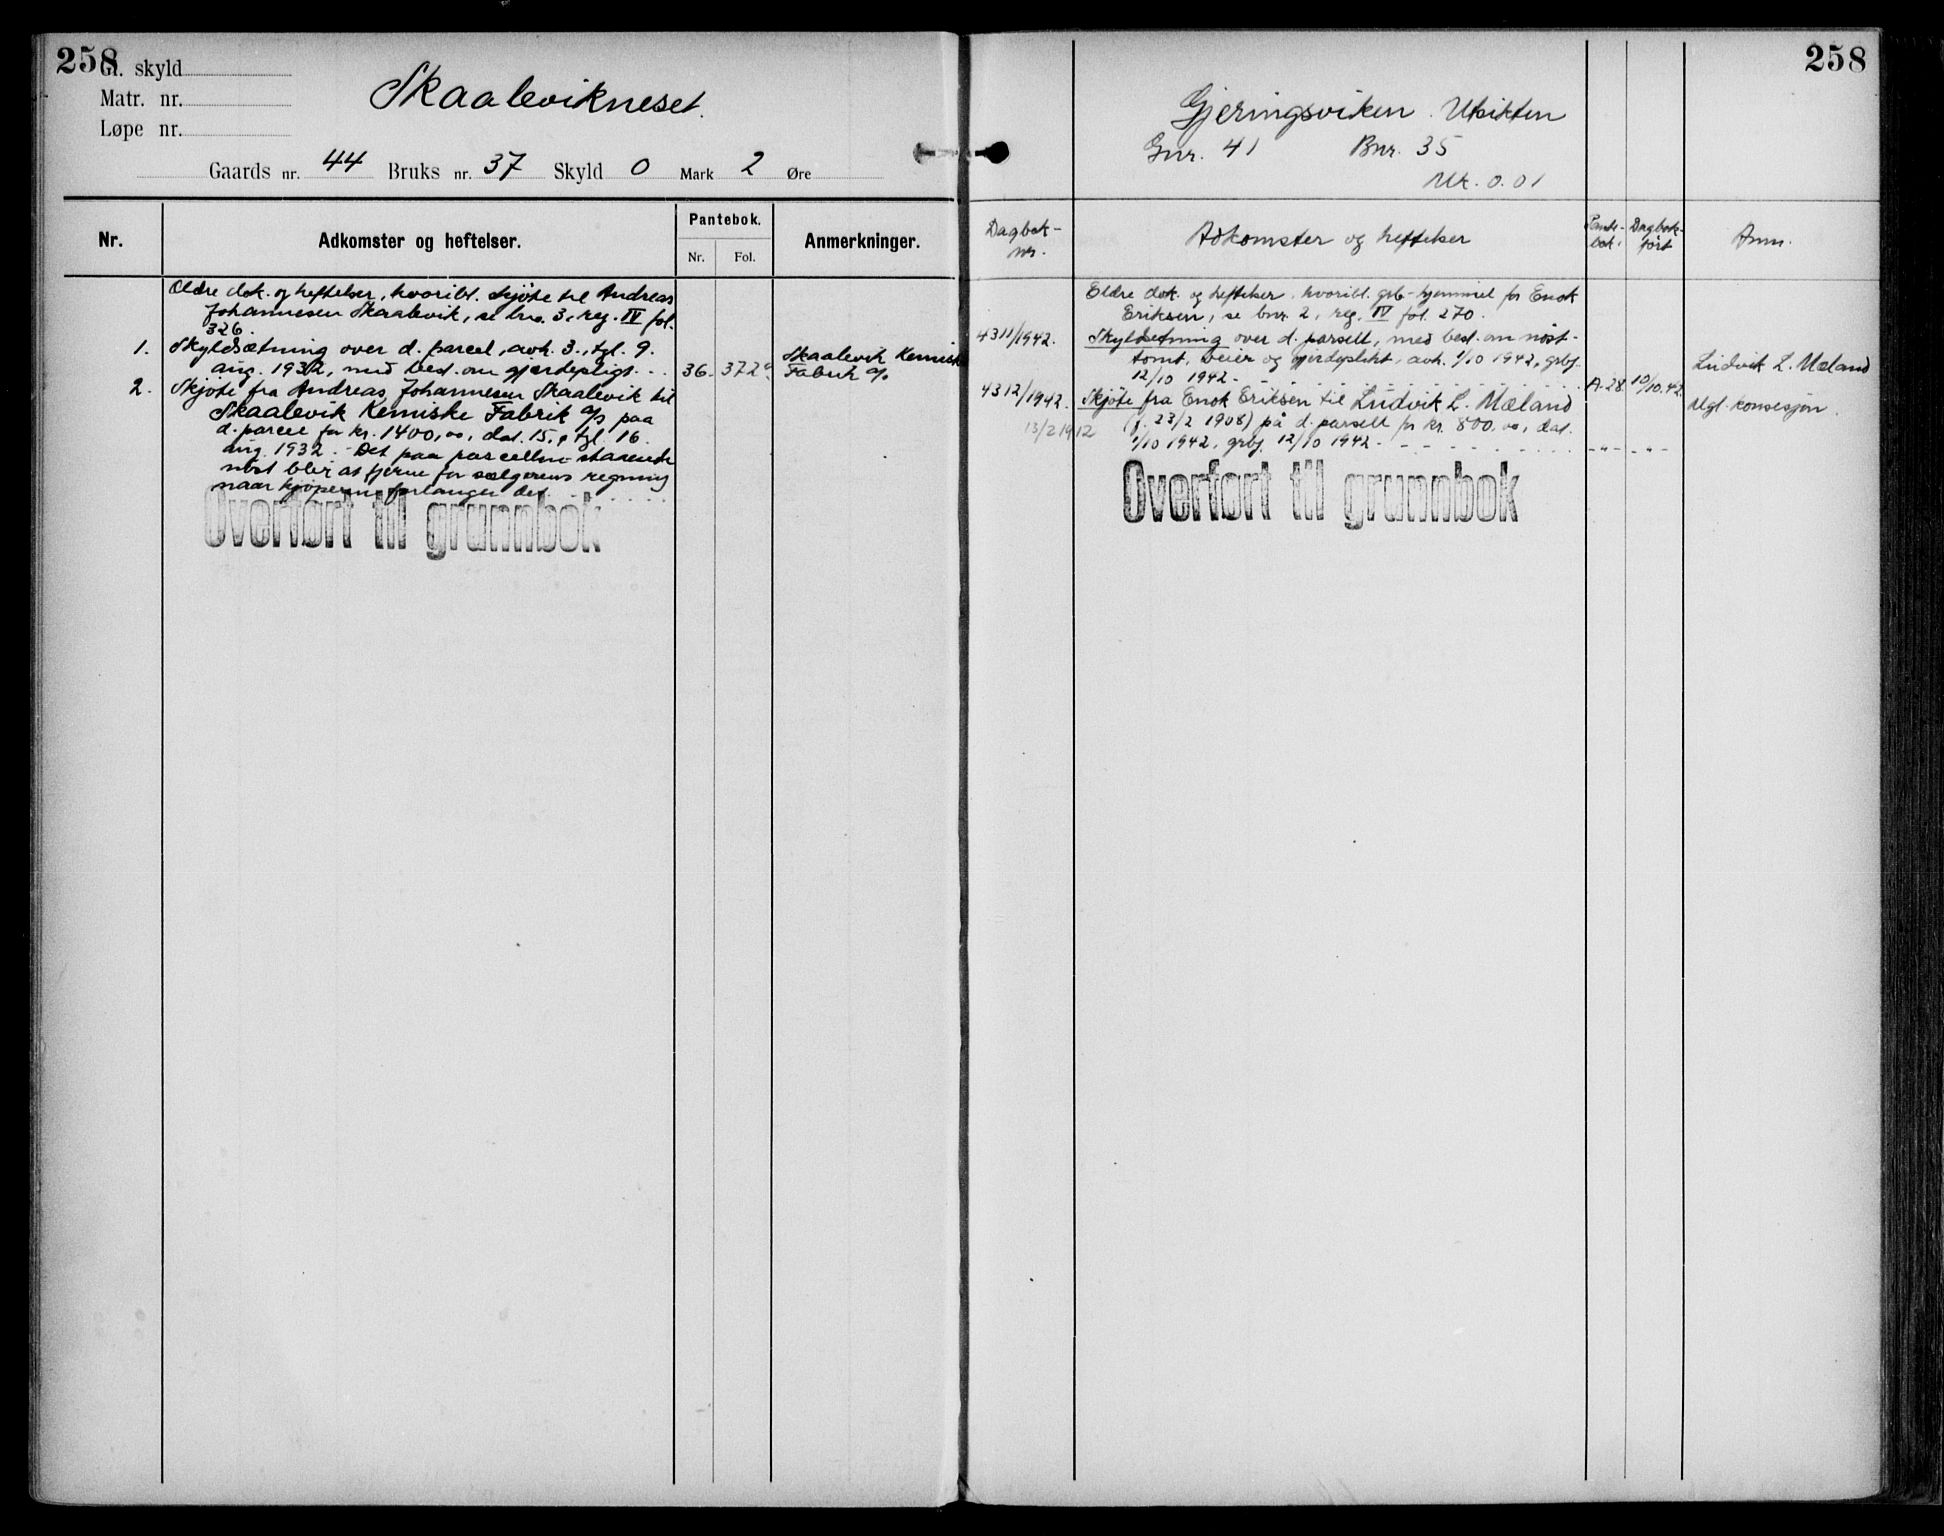 258
Gl. skyld
Matr. nr.
Løpe nr.
Skaalevikneset.
Gaards nr. 44 Bruks nr. 37 Skyld 0 Mark 2 Øre
Nr.
Adkomster og heftelser.
Pantebok.
Nr. Fol.
Anmerkninger.
Ældre dok. og heftelser, hvoribl. skjøte til Andreas
Johannesen Skaalevik, se bno. 3, reg. IV fol.
326.
1. Skyldsætning over d. parcel, avh. 3., tgl. 9.
aug. 1932, med best. om gjerdepligt. 36. 372
Skaalevik Kemiske
Fabrik A/S
2. Skjøte fra Andreas Johannesen Skaalevik til
Skaalevik Kemiske Fabrik A/S paa
d. parcel for kr. 1400,00, dat. 15., tgl. 16.
aug. 1932. - Det paa parcellen staaende
nøst blir at fjerne for sælgerens regning
naar kjøperne forlanger det.
Overført til grunnbok
258
Gjeringsviken. Utsikten
Gnr. 41 Bnr. 35
Mk. 0.01
Dagbok-
nr.
Adkomster og heftelser
Pante-
bok.
Dagbok-
ført
Anm.
Eldre dok. og heftelser, hvoribl. grb-hjemmel for Enok
Eriksen, se bnr. 2, reg. IV fol. 270.
4311/1942. Skyldsetning over d. parsell, med best. om nøst-
tomt, veier og gjerdeplikt, avh. 1/10 1942, grbf.
12/10 1942 - A.28 10/10.42.
Ludvik L. Mæland
4312/1942. Skjøte fra Enok Eriksen til Ludvik L. Mæland
13/2 1912 (f. 23/2 1908) på d. parsell for kr. 800,00, dat.
1/10 1942, grbf. 12/10 1942 - -"- -"-
Ugl. konsesjon.
Overført til grunnbok